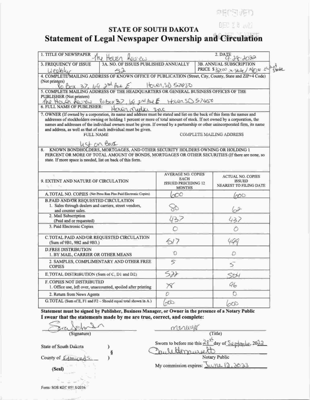 STATE OF SOUTH DAKOTA
Statement of Legal Newspaper Ownership and Circulation
1. TITLE OF NEWSPAPER The Hoven Review
2. DATE
3. FREQUENCY OF ISSUE Weekly
3A. NO. OF ISSUES PUBLISHED ANNUALLY 52
3B. ANNUAL SUBSCRIPTION PRICE $
4. COMPLETE MAILING ADDRESS OF KNOWN OFFICE OF PUBLICATION (Street, City, County, State and ZIP+4 Code) (Not printers)
5. COMPLETE MAILING ADDRESS OF THE HEADQUARTERS OR GENERAL BUSINESS OFFICES OF THE PUBLISHER (Not printer)
The Hoven Review
6. FULL NAME OF PUBLISHER: Hoven Media Inc
7. OWNER (If owned by a corporation, its name and address must be stated and list on the back of this form the names and addresses of stockholders owning or holding 1 percent or more of total amount of stock. If not owned by a corporation, the names and addresses of the individual owners must be given. If owned by a partnership or other unincorporated firm, its name and address, as well as that of each individual must be given.
FULL NAME
COMPLETE MAILING ADDRESS
list on back
8. KNOWN BONDHOLDERS, MORTGAGES, AND OTHER SECURITY HOLDERS OWNING OR HOLDING 1 PERCENT OR MORE OF TOTAL AMOUNT OF BONDS, MORTGAGES OR OTHER SECURITIES (If there are none, so state. If more space is needed, list on back of this form.
8. EXTENT AND NATURE OF CIRCULATION
AVERAGE NO. COPIES EACH ISSUED PRECEDING 12 MONTHS
ACTUAL NO. COPIES ISSUED NEAREST TO FILING DATE
A. TOTAL NO. COPIES (Net Press Run Plus Paid Electronic Copies) 600 600
B. PAID AND/OR REQUESTED CIRCULATION
1. Sales through dealers and carriers, street vendors, and counter sales. 80 62
2. Mail Subscription (Paid and or requested) 437 437
3. Paid Electronic Copies 0 0
C. TOTAL PAID AND/OR REQUESTED CIRCULATION (Sum of 9B1, 9B2 and 9B3.) 517 499
D. FREE DISTRIBUTION
1. BY MAIL, CARRIER OR OTHER MEANS 0 0
2. SAMPLES, COMPLIMENTARY AND OTHER FREE COPIES 5 5
E. TOTAL DISTRIBUTION (Sum of C, D1 and D2) 522 504
F. COPIES NOT DISTRIBUTED
1. Office use, left over, unaccounted, spoiled after printing 78 96
2. Return from News Agents 0 0
G. TOTAL (Sum of E, F1 and F2 - Should equal total shown in A.) 600 600
Statement must be signed by Publisher, Business Manager, or Owner in the presence of a Notary Public
I swear that the statements made by me are true, correct, and complete:
(Signature)
manager
(Title)
State of South Dakota )
§
County of Edmunds )
(Seal)
Sworn to before me this 28th day of September 2022
Notary Public
My commission expires: June 12, 2023